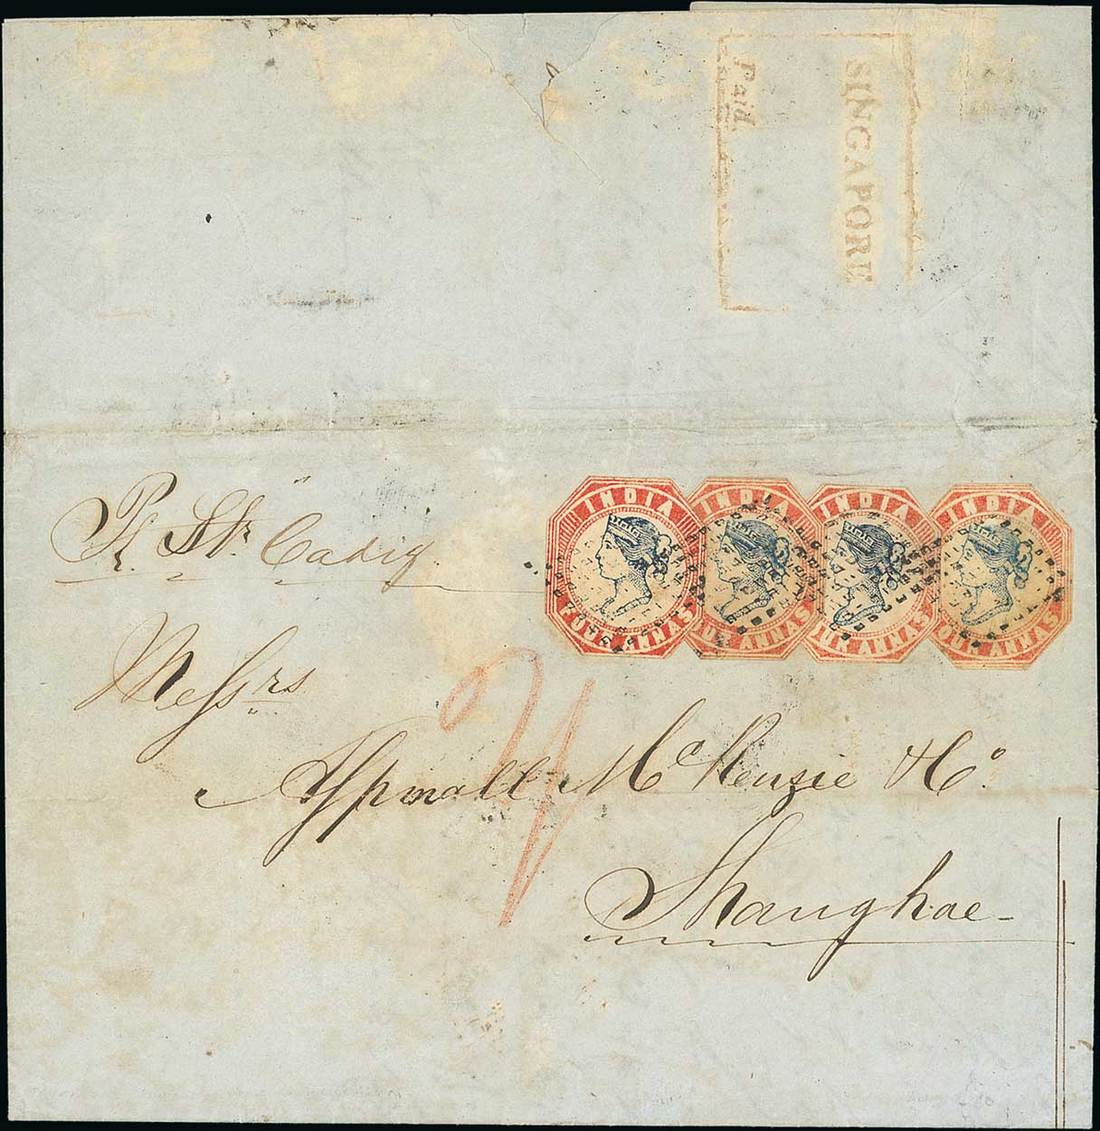 SINGAPORE
Paid.
Pr Str Cadiz
INDIA
FOUR ANNAS
INDIA
FOUR ANNAS
INDIA
FOUR ANNAS
INDIA
FOUR ANNAS
Messrs
Aspinall McKenzie & Co.
Shanghae